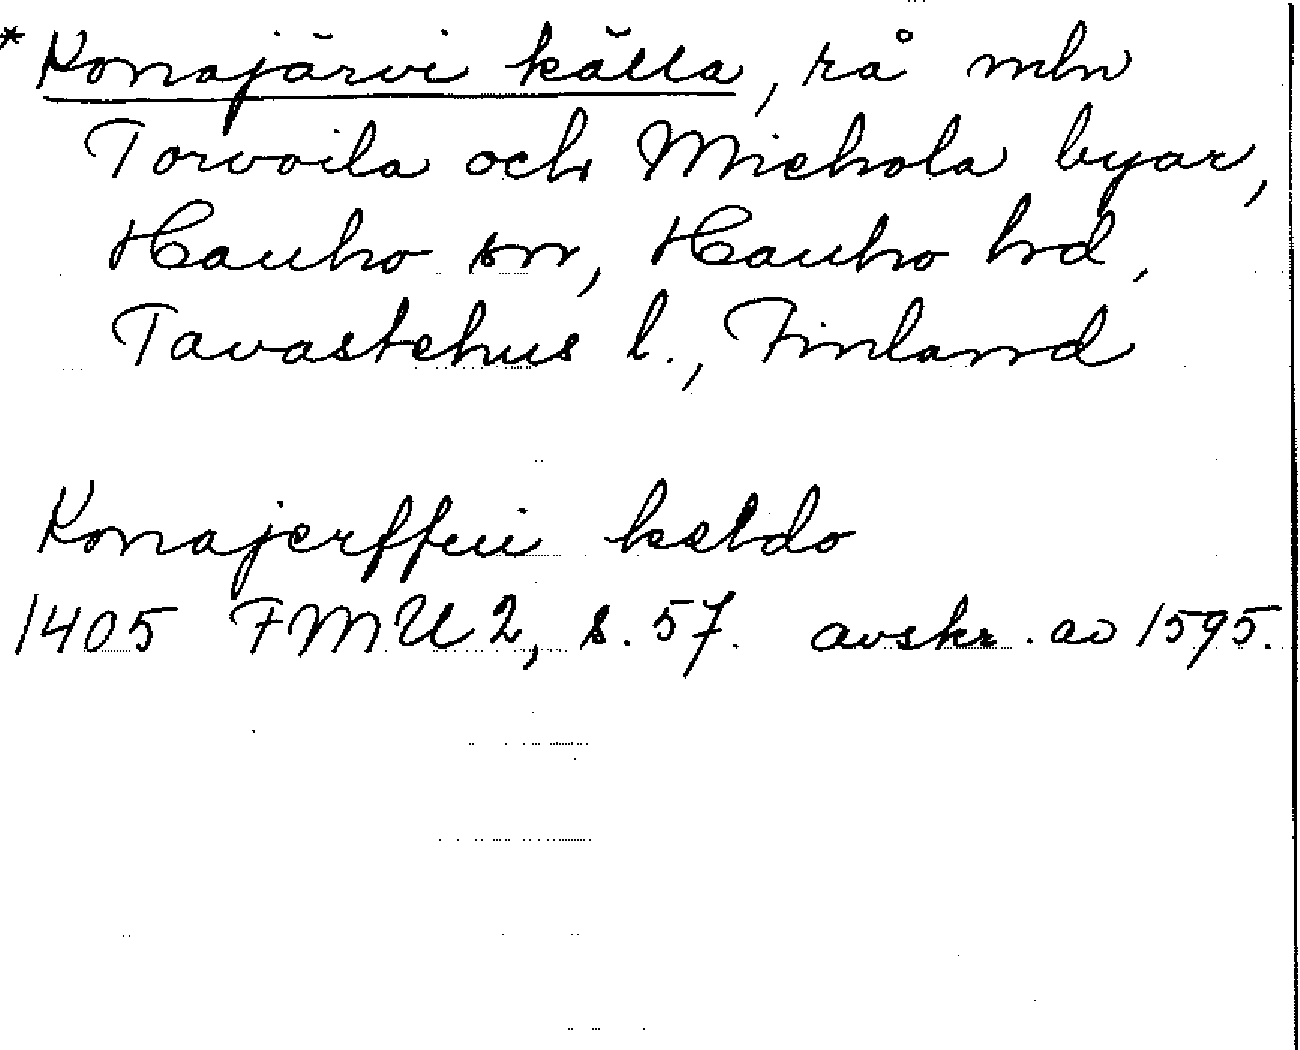 * Konajärvi källa, rå mln
Torvoila och Michola byar,
Hauho sn, Hauho hd,
Tavastehus l., Finland
Konajerffui keldo
1405 FMU 2, s. 57. avskr. av 1595.